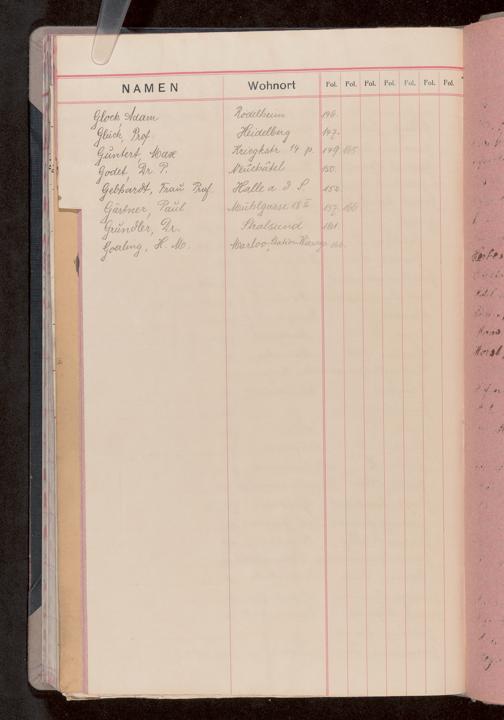 NAMEN Wohnort Fol. Fol. Fol. Fol. Fol. Fol. Fol.
Glock, Adam Rödelheim 146.
Glück, Prof. Heidelberg 147.
Güntert, Max Kriegkstr 14 p. 149
Godet, Dr. P. Neuchâtel 150.
Gebhardt, Frau Prof. Halle a. d. S. 152.
Gärtner, Paul Mühlgasse 18 II 157.
Gründler, Dr. Stralsund 161.
Goaling, H. M. Station